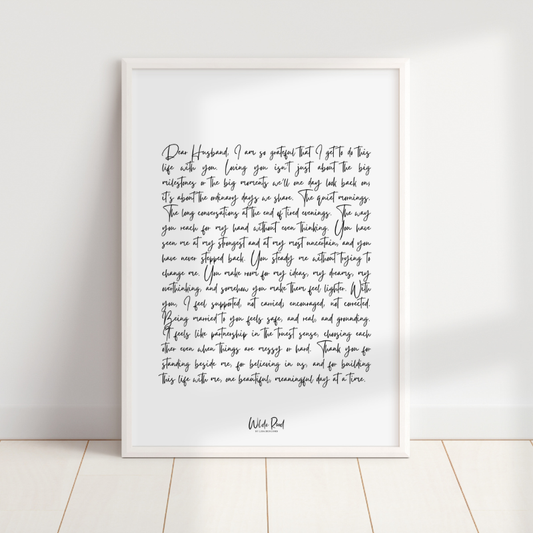 Dear Husband, I am so grateful that I get to do this
life with you. Loving you isn't just about the big
milestones or the big moments we'll one day look back on,
it's about the ordinary days we share. The quiet mornings.
The long conversations at the end of tired evenings. The way
you reach for my hand without even thinking. You have
seen me at my strongest and at my most uncertain, and you
have never stepped back. You steady me without trying to
change me. You make room for my ideas, my dreams, my
overthinking, and somehow you make them feel lighter. With
you, I feel supported, not carried; encouraged, not corrected.
Being married to you feels safe, and real, and grounding.
It feels like partnership in the truest sense, choosing each
other even when things are messy or hard. Thank you for
standing beside me, for believing in us, and for building
this life with me, one beautiful, meaningful day at a time.
Wilde Road